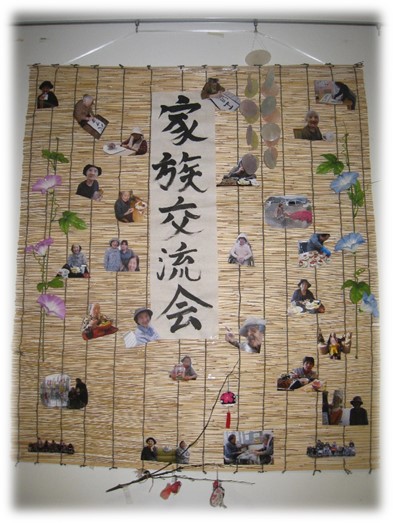 家族交流会